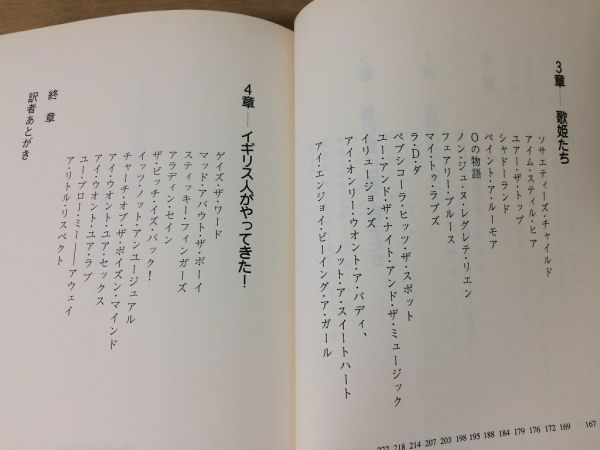 3章――歌姫たち
ソサエティーズ・チャイルド
アイム・スティル・ヒア
ユアー・ザ・トップ
シャドー・ランド
ペイント・ア・ルーモア
Oの物語
ノン・ジュ・ヌ・レグレテ・リエン
フェアリー・ブルース
マイ・トゥ・ラブズ
ラ・D・ダ
ペプシコーラ・ヒッツ・ザ・スポット
ユー・アンド・ザ・ナイト・アンド・ザ・ミュージック
イリュージョンズ
アイ・オンリー・ウオント・ア・バディ、
ノット・ア・スイートハート
アイ・エンジョイ・ビーイング・ア・ガール
222 218 214 207 203 198 195 188 184 179 176 172 169 167
4章――イギリス人がやってきた!
ゲイズ・ザ・ワード
マッド・アバウト・ザ・ボーイ
スティッキー・フィンガーズ
アラディン・セイン
ザ・ビッチ・イズ・バック!
イッツ・ノット・アンユージュアル
チャーチ・オブ・ザ・ポイズン・マインド
アイ・ウオント・ユア・セックス
アイ・ウオント・ユア・ラブ
ユー・ブロー・ミー――アウェイ
ア・リトル・リスペクト
終章
訳者あとがき